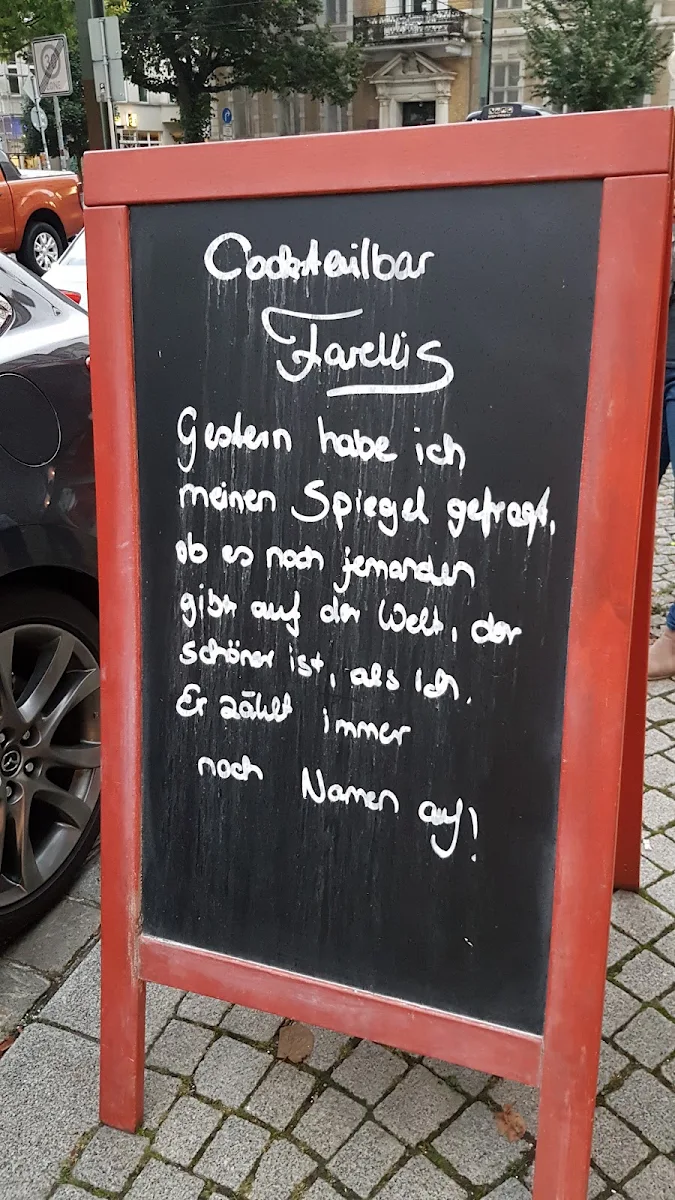 Cocktailbar
Favellis
Gestern habe ich
meinen Spiegel gefragt,
ob es noch jemanden
gibt auf der Welt, der
schöner ist, als ich.
Er zählt immer
noch Namen auf!